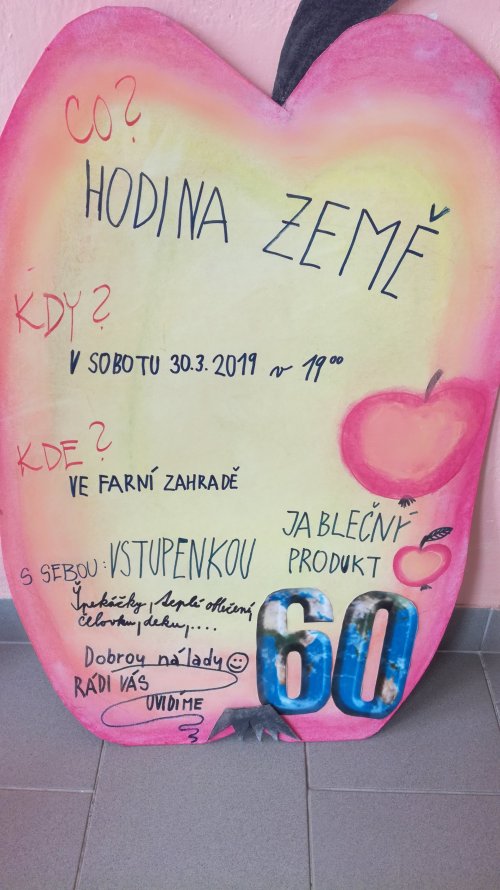 CO?
HODINA ZEMĚ
KDY?
V SOBOTU 30.3.2019 v 19⁰⁰
KDE?
VE FARNÍ ZAHRADĚ
S SEBOU: VSTUPENKOU JABLEČNÝ PRODUKT
Špekáčky, teplé oblečení,
čelovku, deku,....
Dobrou náladu ☺
RÁDI VÁS
UVIDÍME
60